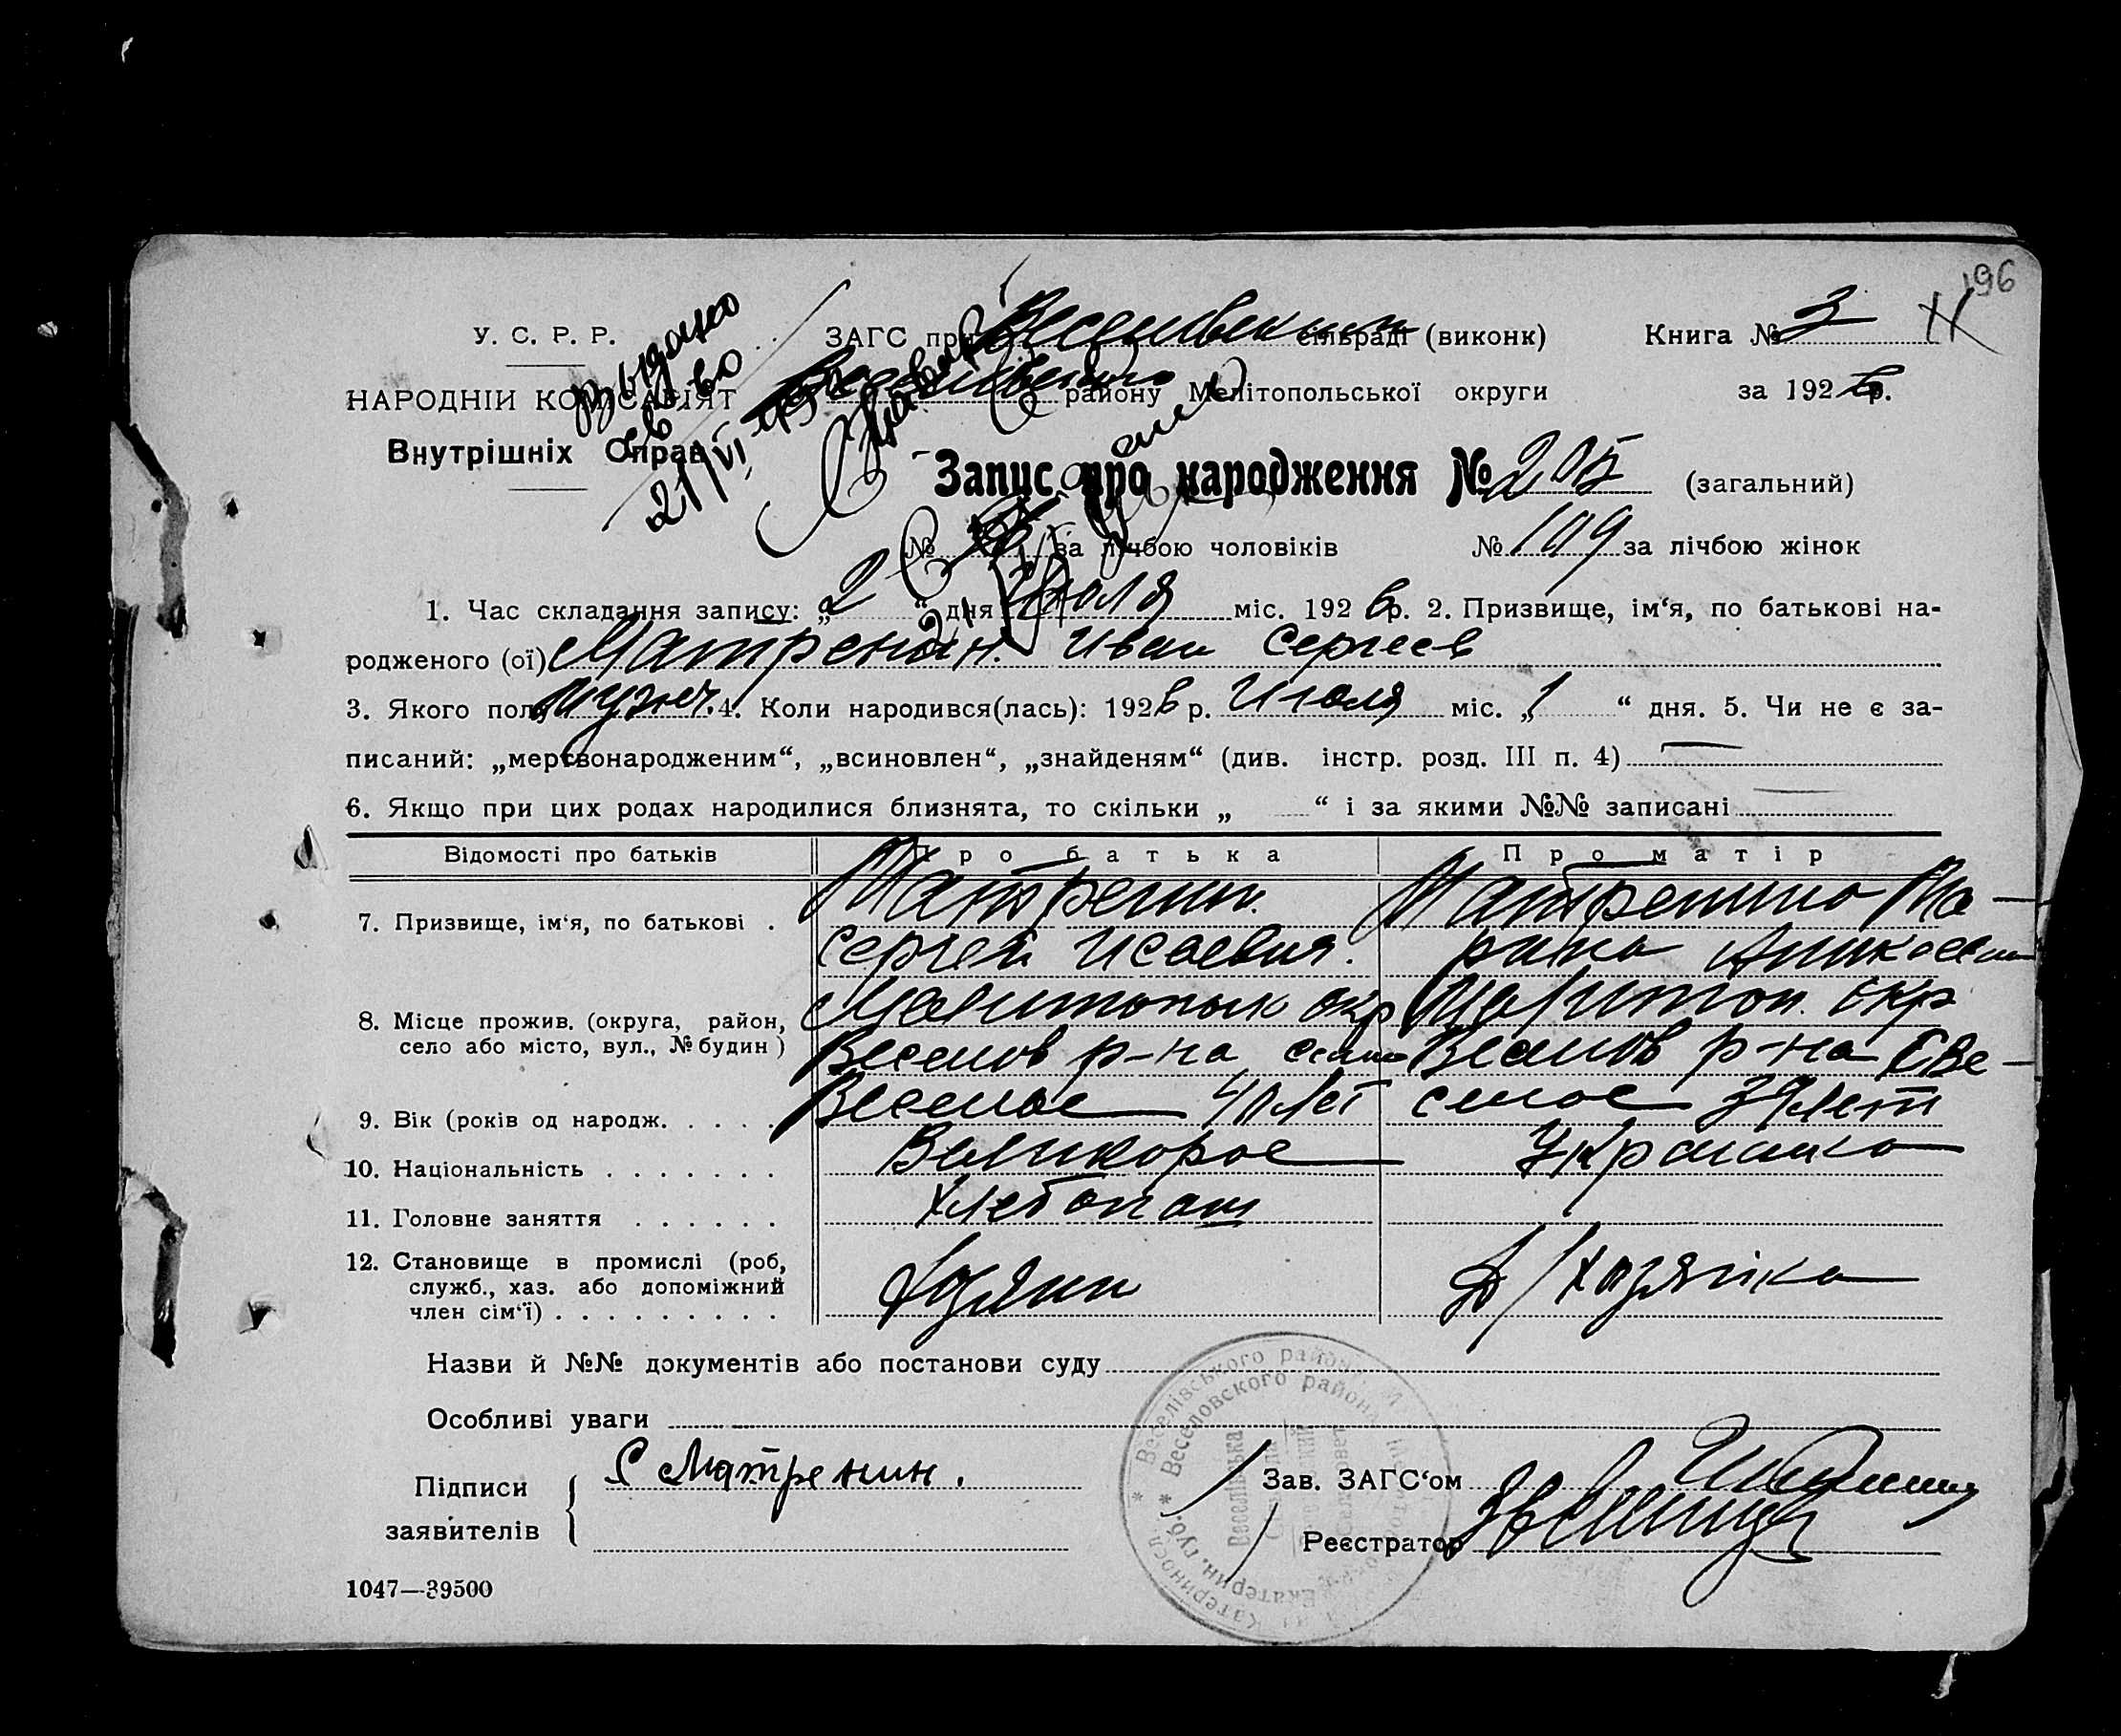 196
У. С. Р. Р. ЗАГС при Веселовском сільраді (виконк) Книга № 3
НАРОДНІЙ КОМІСАРІЯТ Веселовского району Мелітопольської округи за 1926 р.
Внутрішніх Справ
Выдано
св-во
21/VI
Запис про народження № (загальний)
№ за лічбою чоловіків № 109 за лічбою жінок
1. Час складання запису: „2“ дня Июля міс. 1926 р. 2. Призвище, ім‘я, по батькові на-
родженого (ої) Матренин. Иван Сергеев
3. Якого пола мужч. 4. Коли народився(лась): 1926 р. Июля міс. „1“ дня. 5. Чи не є за-
писаний: „мертвонародженим“, „всиновлен“, „знайденям“ (див. інстр. розд. III п. 4) —
6. Якщо при цих родах народилися близнята, то скільки „ “ і за якими №№ записані
Відомості про батьків Про батька Про матір
7. Призвище, ім‘я, по батькові . Матренин. Матренина Ма-
Сергей Исаевич. рина
8. Місце прожив. (округа, район, Мелитопольс окр Мелитоп. окр
село або місто, вул., № будин) Веселов р-на село Веселов р-на С Ве-
9. Вік (років од народж. . . . . Веселое 40 лет селое 39 лет
10. Національність . . . . . . . Великорос Украинка
11. Головне заняття . . . . . . Хлебопаш
12. Становище в промислі (роб, служб., хаз. або допоміжний член сім‘ї) . . . . . . . . . Хозяин Д/хозяйка
Назви й №№ документів або постанови суду
Особливі уваги
Підписи заявителів С Матренин.
Зав. ЗАГС‘ом
Реєстратор
1047—39500
* Веселівського району
* Веселовского района
Екатерин. губ.